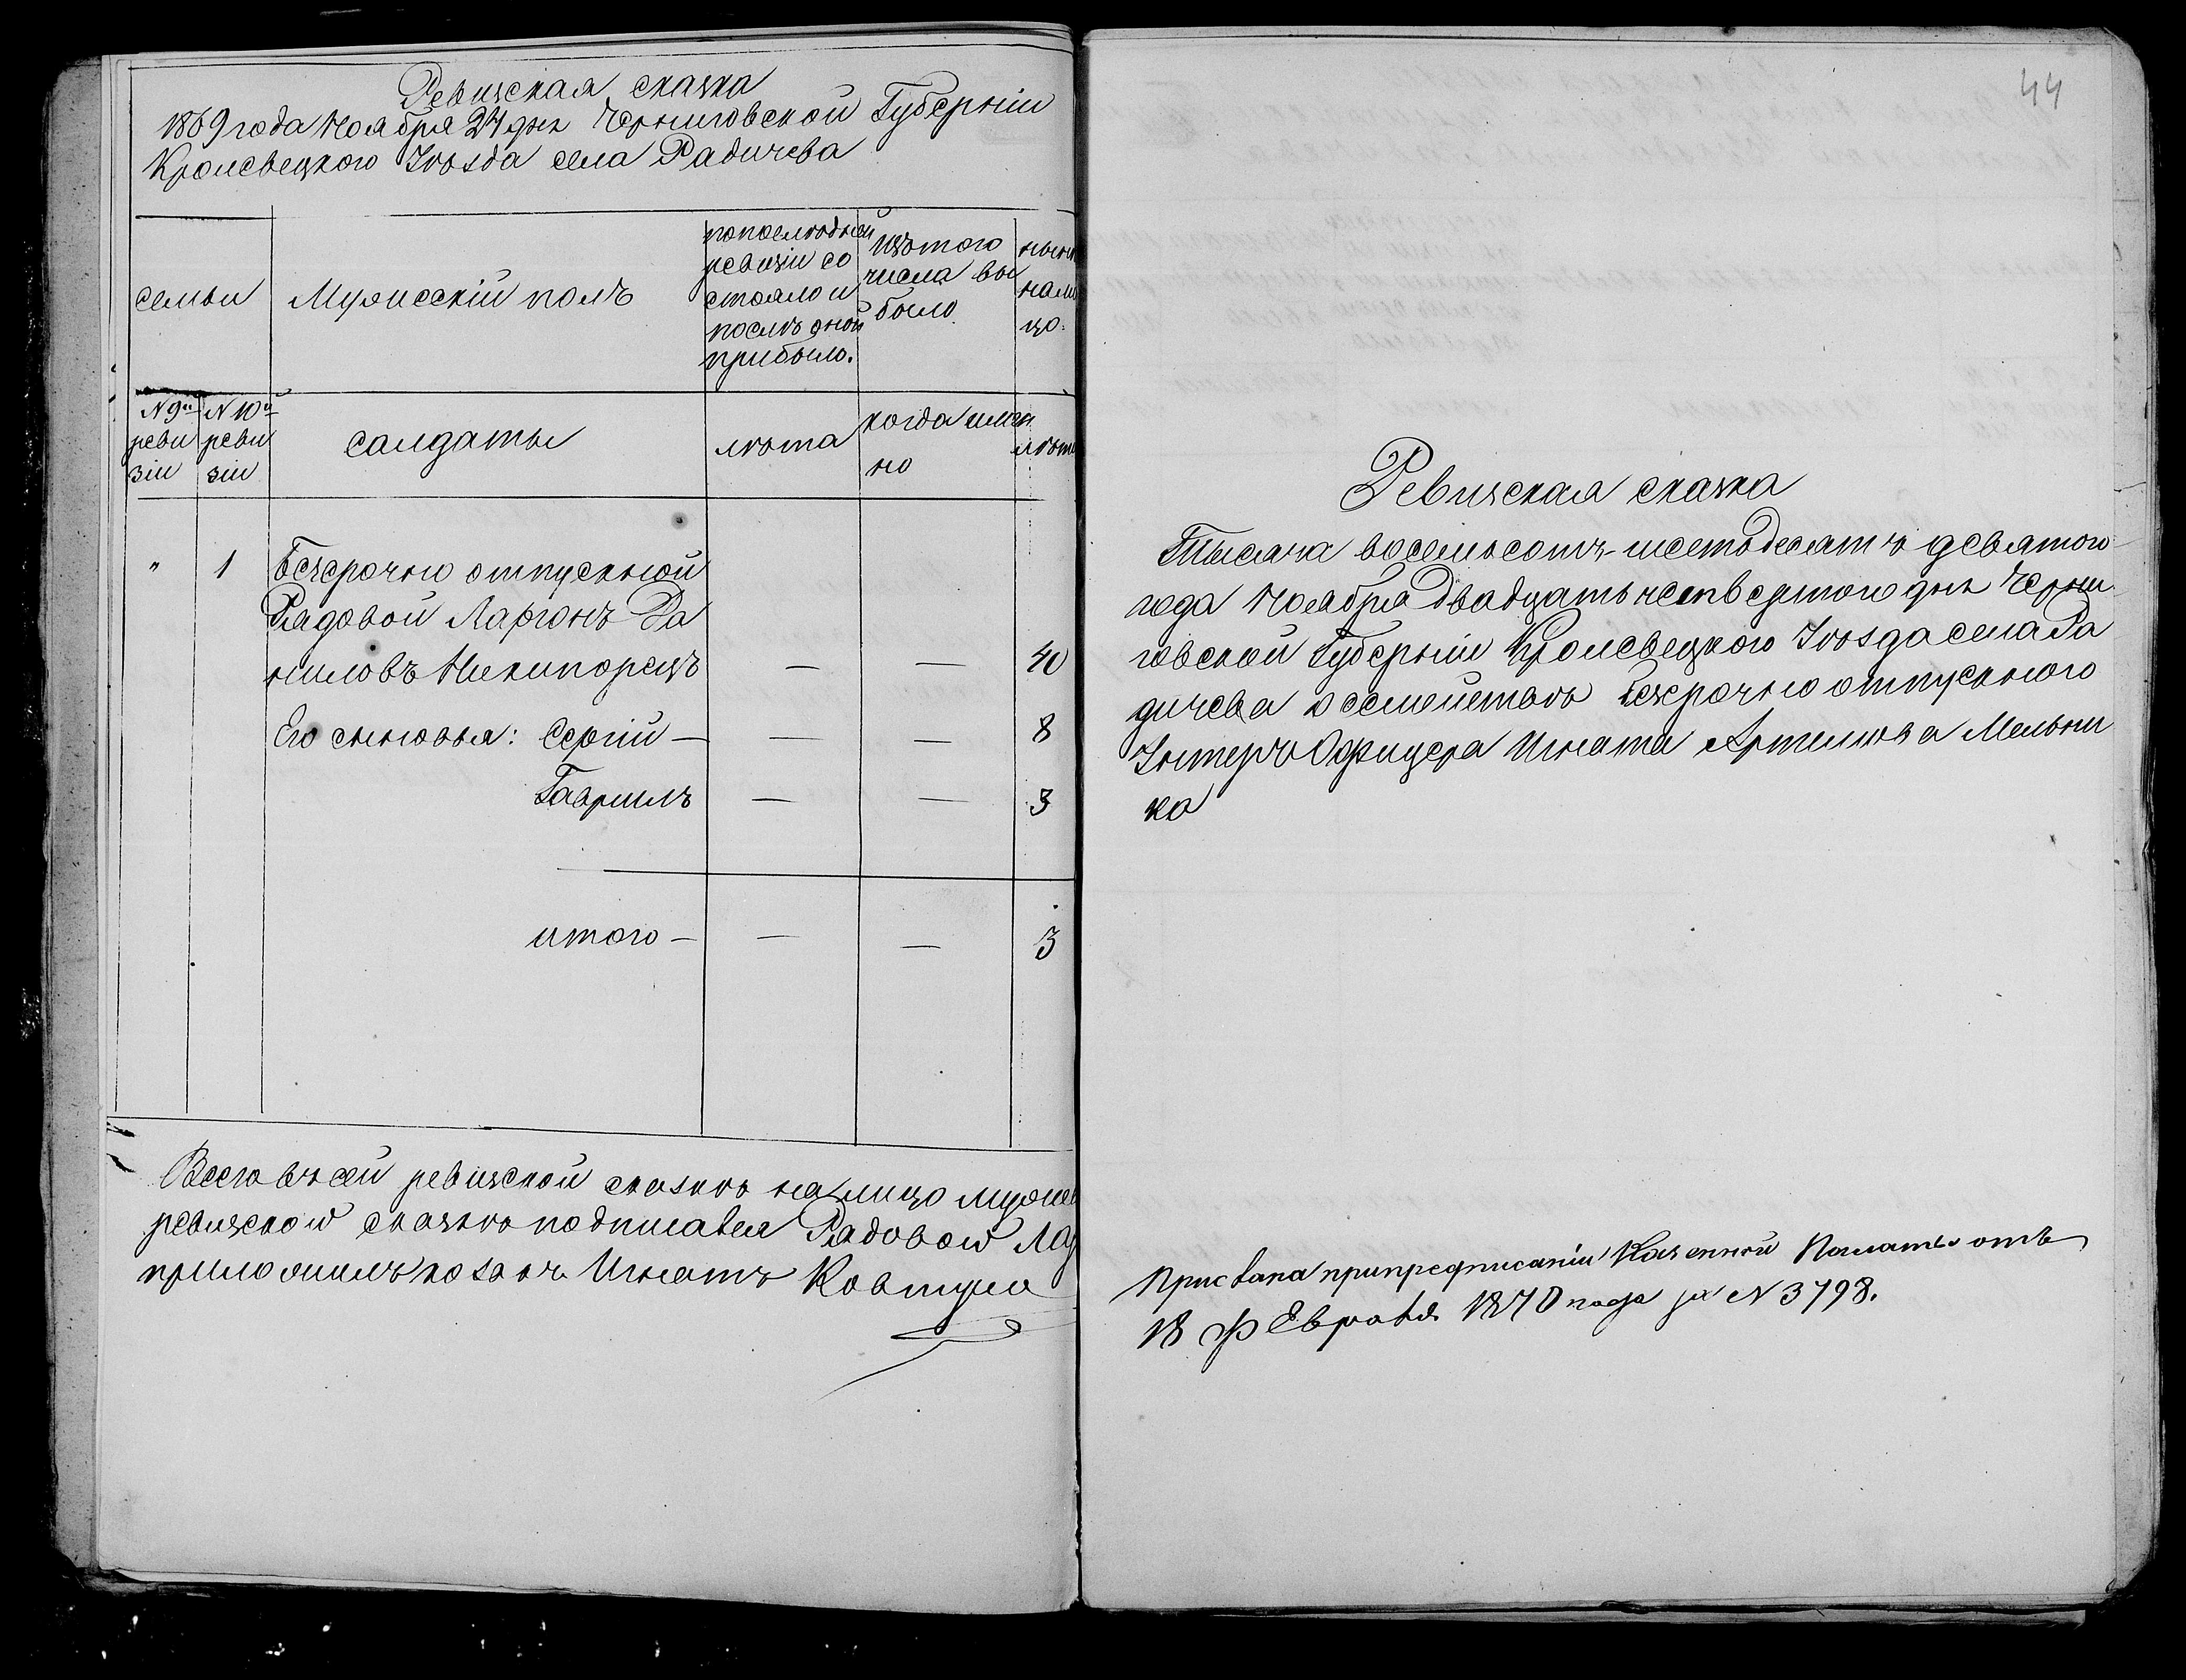 Ревизская сказка
1869 года Ноября 24 дня Черниговской Губерніи
Кролевецкого Уѣзда села Радичева
семьи
Мужесскій полъ
попослѣдней
ревизіи со
стояло и
послѣ оной
прибыло.
Изъ того
числа вы
было.
нынѣ
нали
цо.
N 9й
реви
зіи
N 10й
реви
зіи
салдаты
лѣта
когда имен
но
лѣта
" 1 Безсрочно отпускной
Рядовой Ларіонъ Да
ниловъ Никипорецъ — — 40
Его сыновья: Сергій — — — 8
Гаврилъ — — 3
итого — — — 3
Всего въ сей ревизской сказкѣ налицо мужес
ревизской сказкѣ подписался Рядовой Лар
приложилъ козакъ Игнатъ Ковтунъ
44
Ревизская сказка
Тысяча восемьсотъ шестьдесятъ девятого
года Ноября двадцать четвертого дня Черни
говской Губерніи Кролевецкого Уѣзда села Ра
дичева о семействѣ безсрочно отпускного
Унтеръ Офицера Игната Артемова Мельни
ка
Прислана при предписаніи Казенной Палаты отъ
18 Февраля 1870 года за N 3798.